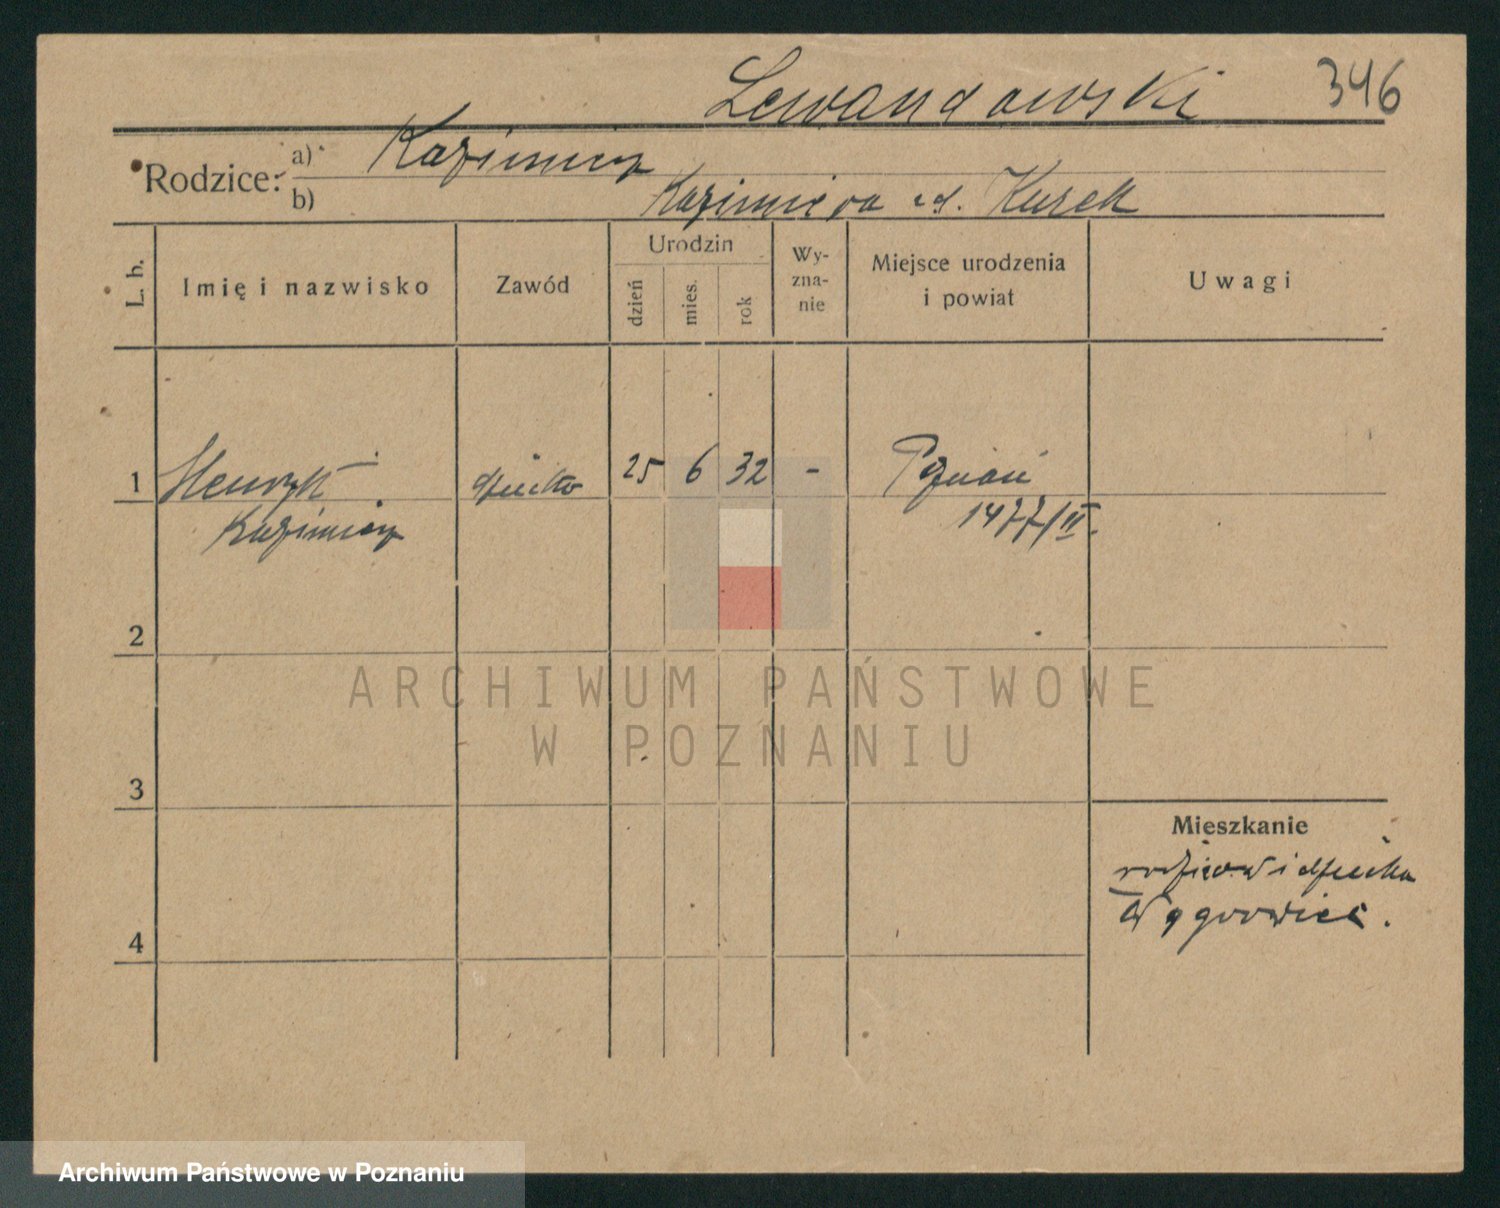 Lewandowski 346
Rodzice: a) Kazimierz
b) Kazimiera zd. Kurek
L. b. Imię i nazwisko Zawód Urodzin dzień mies. rok Wy-zna-nie Miejsce urodzenia i powiat Uwagi
1 Henryk dziecko 25 6 32 - Poznań
Kazimierz 1477/II.
2
3
Mieszkanie
rodziców i dziecka
Wągrowiec.
4
ARCHIWUM PAŃSTWOWE
W POZNANIU
Archiwum Państwowe w Poznaniu